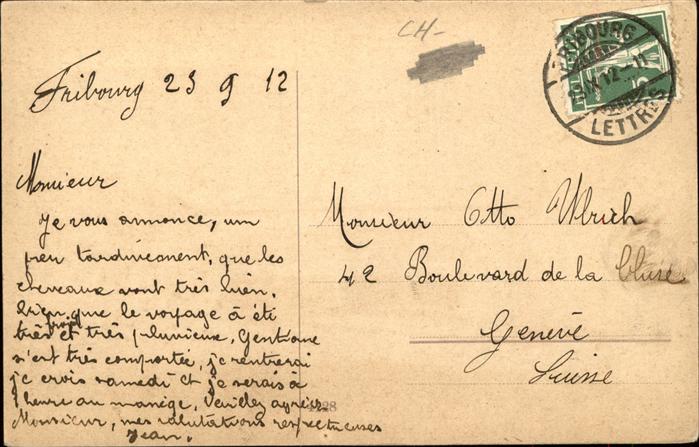 CH-
FRIBOURG
23.IX.12-11
LETTRES
Fribourg 23 9 12
Monsieur
Je vous annonce, un
peu tardivement, que les
chevaux vont très bien,
bien que le voyage à été
très froid et très pluvieux, Gentiane
s'est très comportée, je rentrerai
je crois samedi et je serais à
l'heure au manège, Veuillez agréer
Monsieur, mes salutations respectueuses
Jean.
Monsieur Otto Ulrich
42 Boulevard de la Cluse
Genève
Suisse